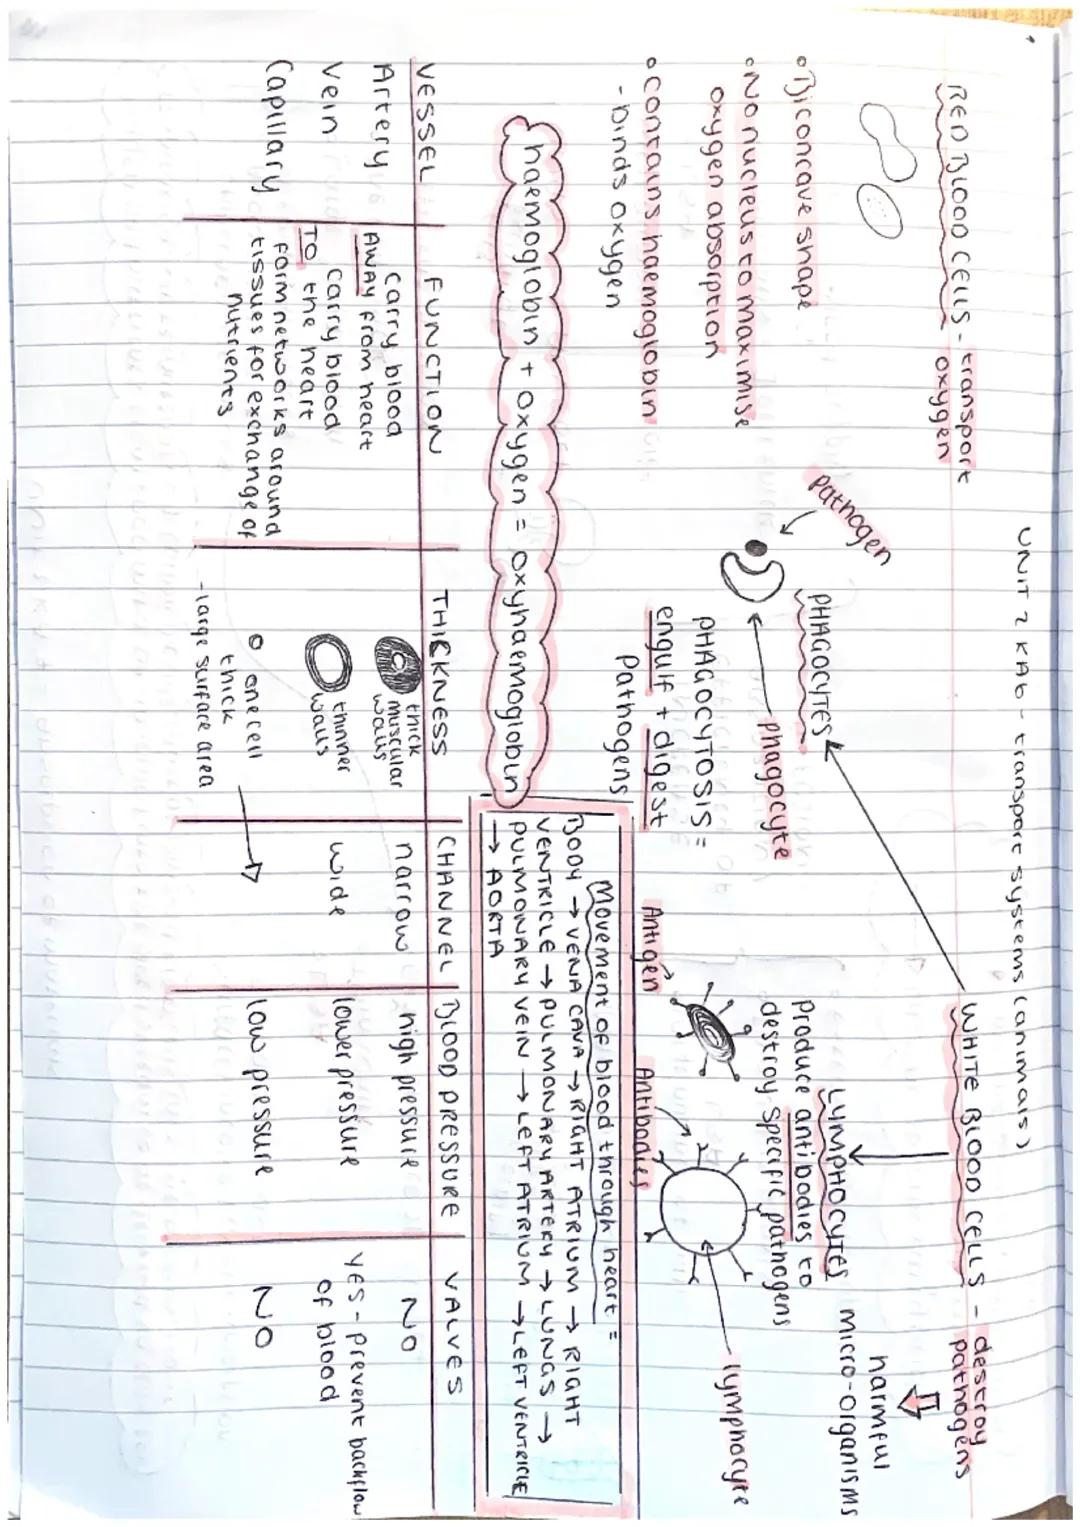 UNIT 2 KA6 - transport systems (animals)
RED BLOOD CELLS - transport
oxygen
• Biconcave shape
• No nucleus to maximise
oxygen absorption
• contains haemoglobin
- binds oxygen
WHITE BLOOD CELLS - destroy
pathogens
harmful
micro-organisms
PHAGOCYTES
pathogen
phagocyte
PHAGOCYTOSIS =
engulf + digest
pathogens
LYMPHOCYTES
produce antibodies to
destroy specific pathogens
Antigen
Antibodies
lymphocyte
haemoglobin + oxygen = oxyhaemoglobin
Movement of blood through heart =
BODY → VENA CAVA → RIGHT ATRIUM → RIGHT
VENTRICLE → PULMONARY ARTERY → LUNGS →
PULMONARY VEIN → LEFT ATRIUM → LEFT VENTRICLE
→ AORTA
VESSEL FUNCTION THICKNESS CHANNEL BLOOD PRESSURE VALVES
Artery carry blood
AWAY from heart
thick
muscular
walls
narrow high pressure NO
vein carry blood
TO the heart
thinner
walls
wide lower pressure YES - prevent backflow
of blood
Capillary form networks around
tissues for exchange of
nutrients
one cell
thick
- large surface area
low pressure NO